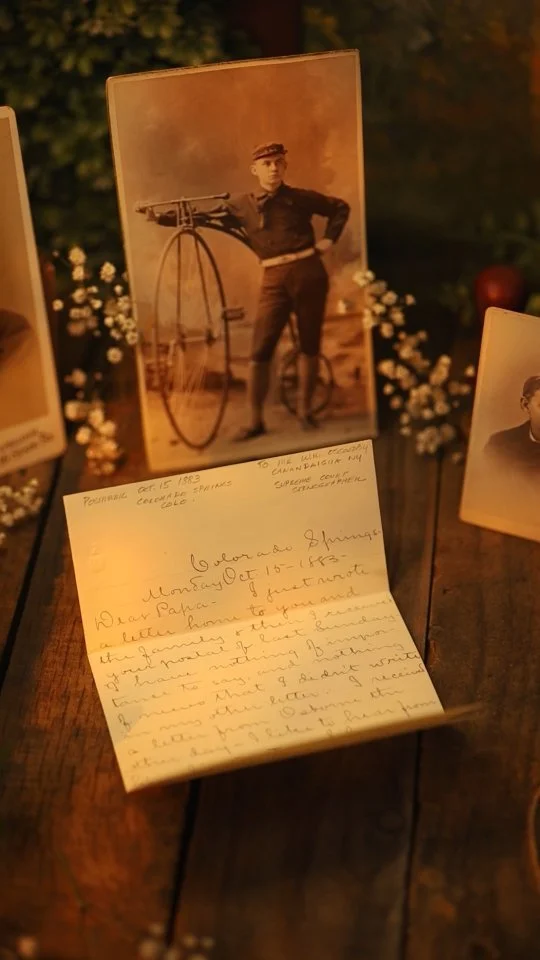 POSTMARK OCT. 15 1883
COLORADO SPRINGS
COLO.
TO: MR. W.H.
CANANDAIGUA NY
SUPREME COURT
STENOGRAPHER
Colorado Springs
Monday Oct 15-1883-
Dear Papa- I just wrote
a letter home to you and
the family & then I received
your postal of last Sunday
I have nothing of impor
tance to say, and nothing
of news that I didn't write
in my other letter. I received
a letter from Osborne the
other day- I like to hear from